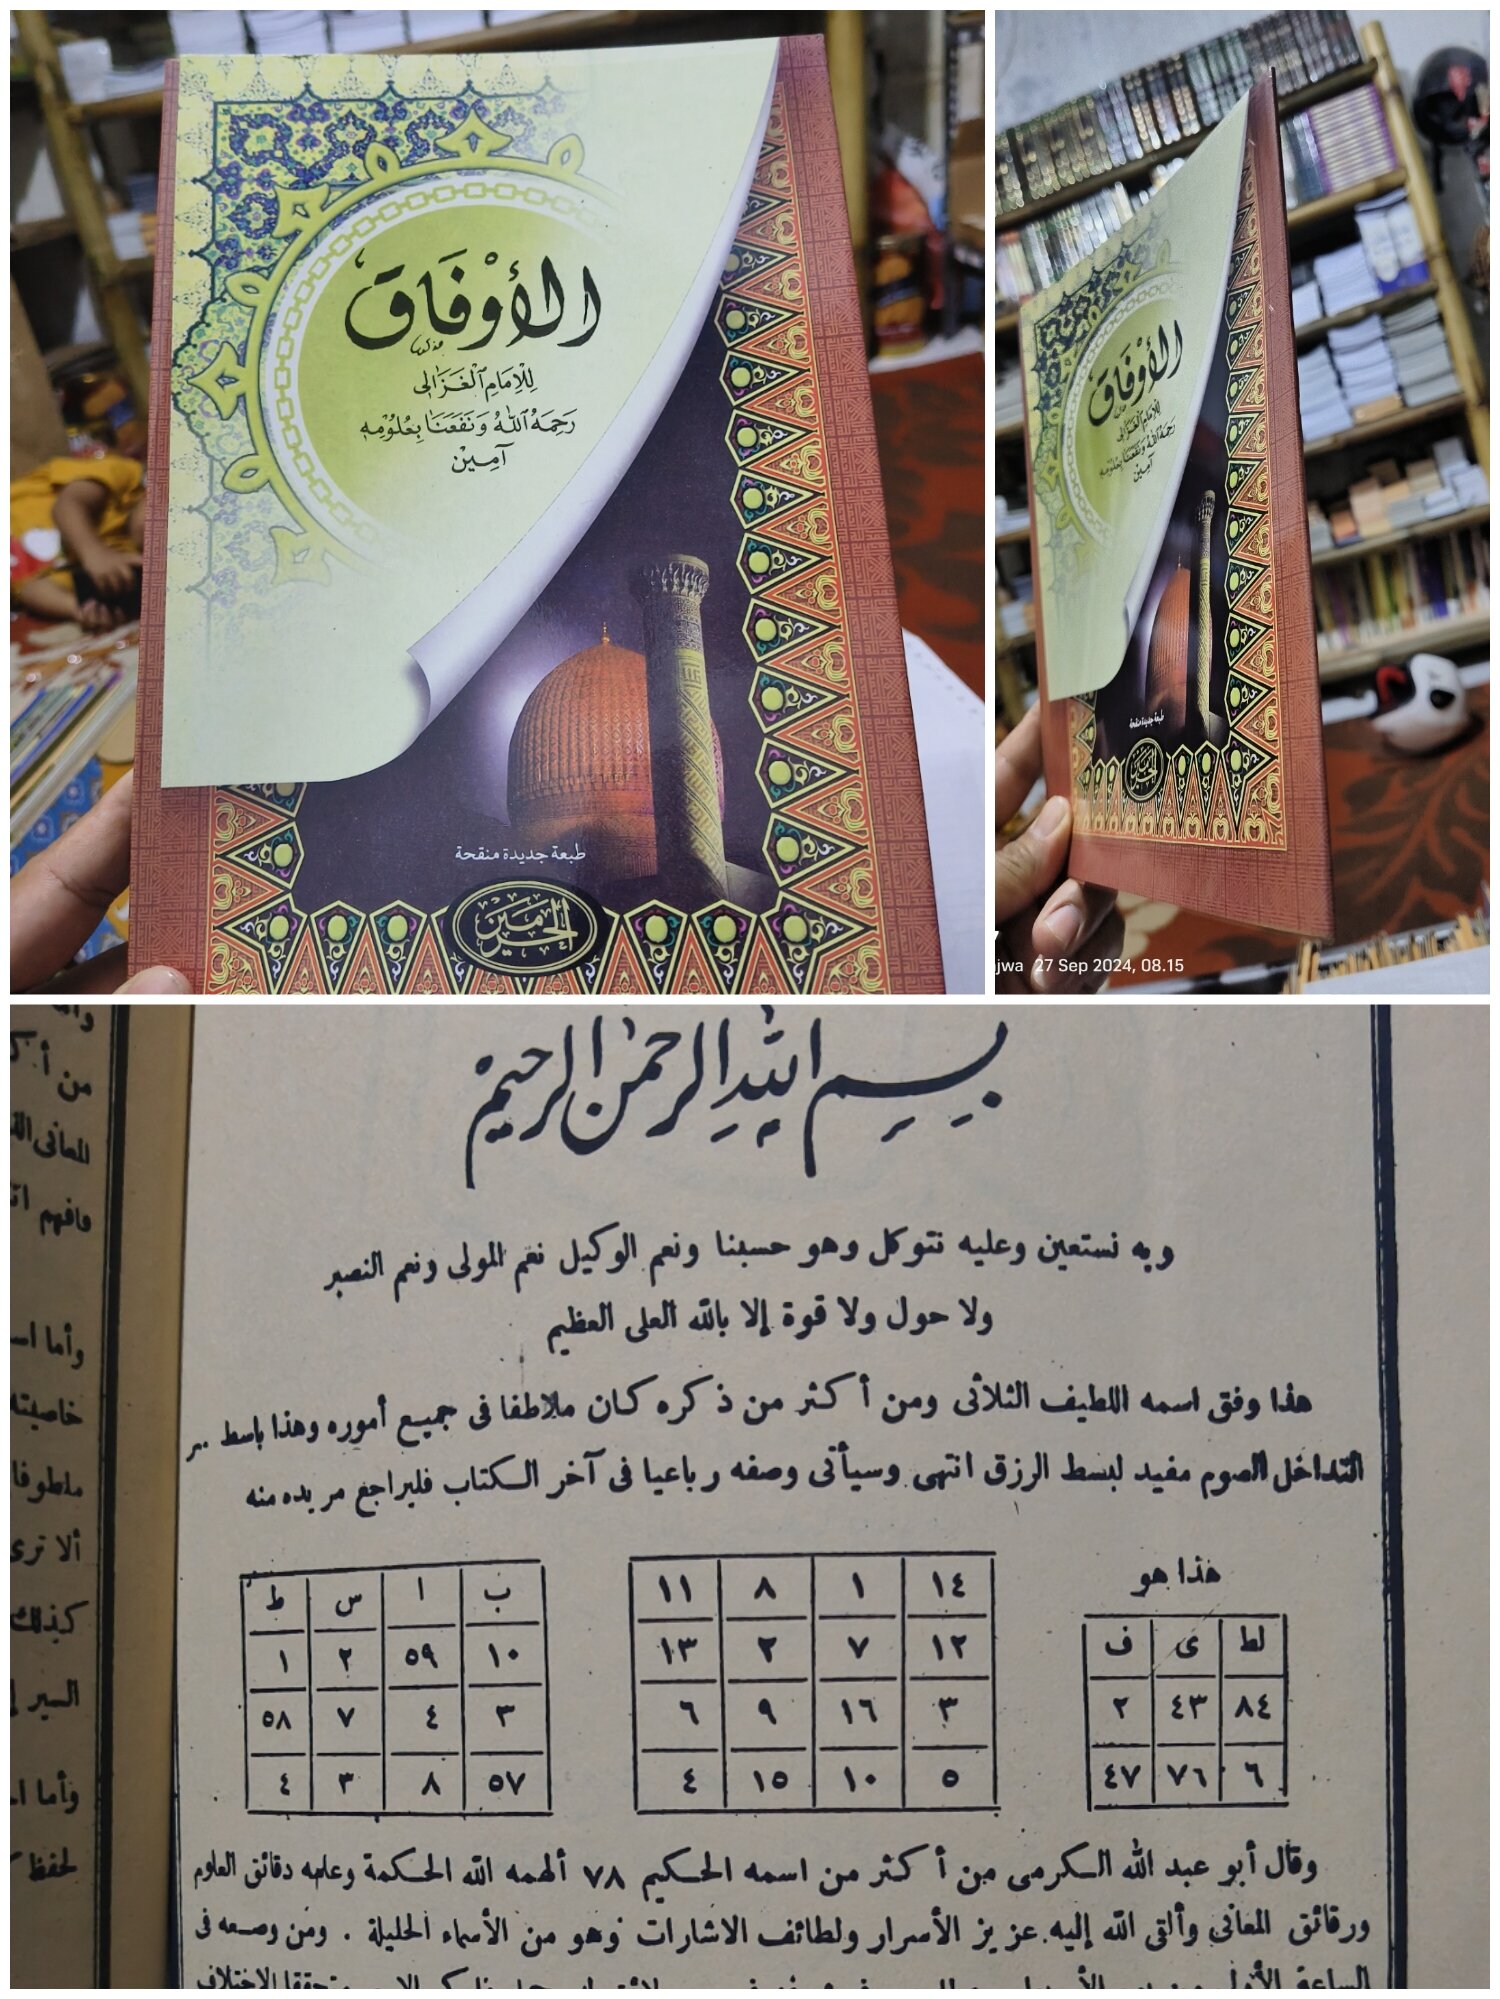 الأوفاق
للإمام الغزالى
رحمه الله ونفعنا بعلومه
آمين
طبعة جديدة منقحة
الحرمين
الأوفاق
للإمام الغزالى
رحمه الله ونفعنا بعلومه
آمين
طبعة جديدة منقحة
الحرمين
jwa 27 Sep 2024, 08.15
بسم الله الرحمن الرحيم
وبه نستعين وعليه نتوكل وهو حسبنا ونعم الوكيل نعم المولى ونعم النصير
ولا حول ولا قوة إلا بالله العلى العظيم
هذا وفق اسمه اللطيف الثلاثى ومن أكثر من ذكره كان ملاطفا فى جميع أموره وهذا باسط
التداخل الصوم مفيد لبسط الرزق انتهى وسيأتى وصفه رباعيا فى آخر الكتاب فليراجع مريده منه
هذا هو
لط ى ف
٨٤ ٤٣ ٢
٦ ٧٦ ٤٧
١٤ ١ ٨ ١١
١٢ ٧ ٢ ١٣
٣ ١٦ ٩ ٦
٥ ١٠ ١٥ ٤
ب ا س ط
١٠ ٥٩ ٢ ١
٣ ٤ ٧ ٥٨
٥٧ ٨ ٣ ٤
وقال أبو عبد الله الكرمى من أكثر من اسمه الحكيم ٧٨ ألهمه الله الحكمة وعلمه دقائق العلوم
ورقائق المعانى وألقى الله إليه عزيز الأسرار ولطائف الاشارات وهو من الأسماء الجليلة . ومن وضعه فى
من أ
المعانى
فافهم
وأما
خاصيته
ألا ترى
كذلك
السير
وأما
لحفظ